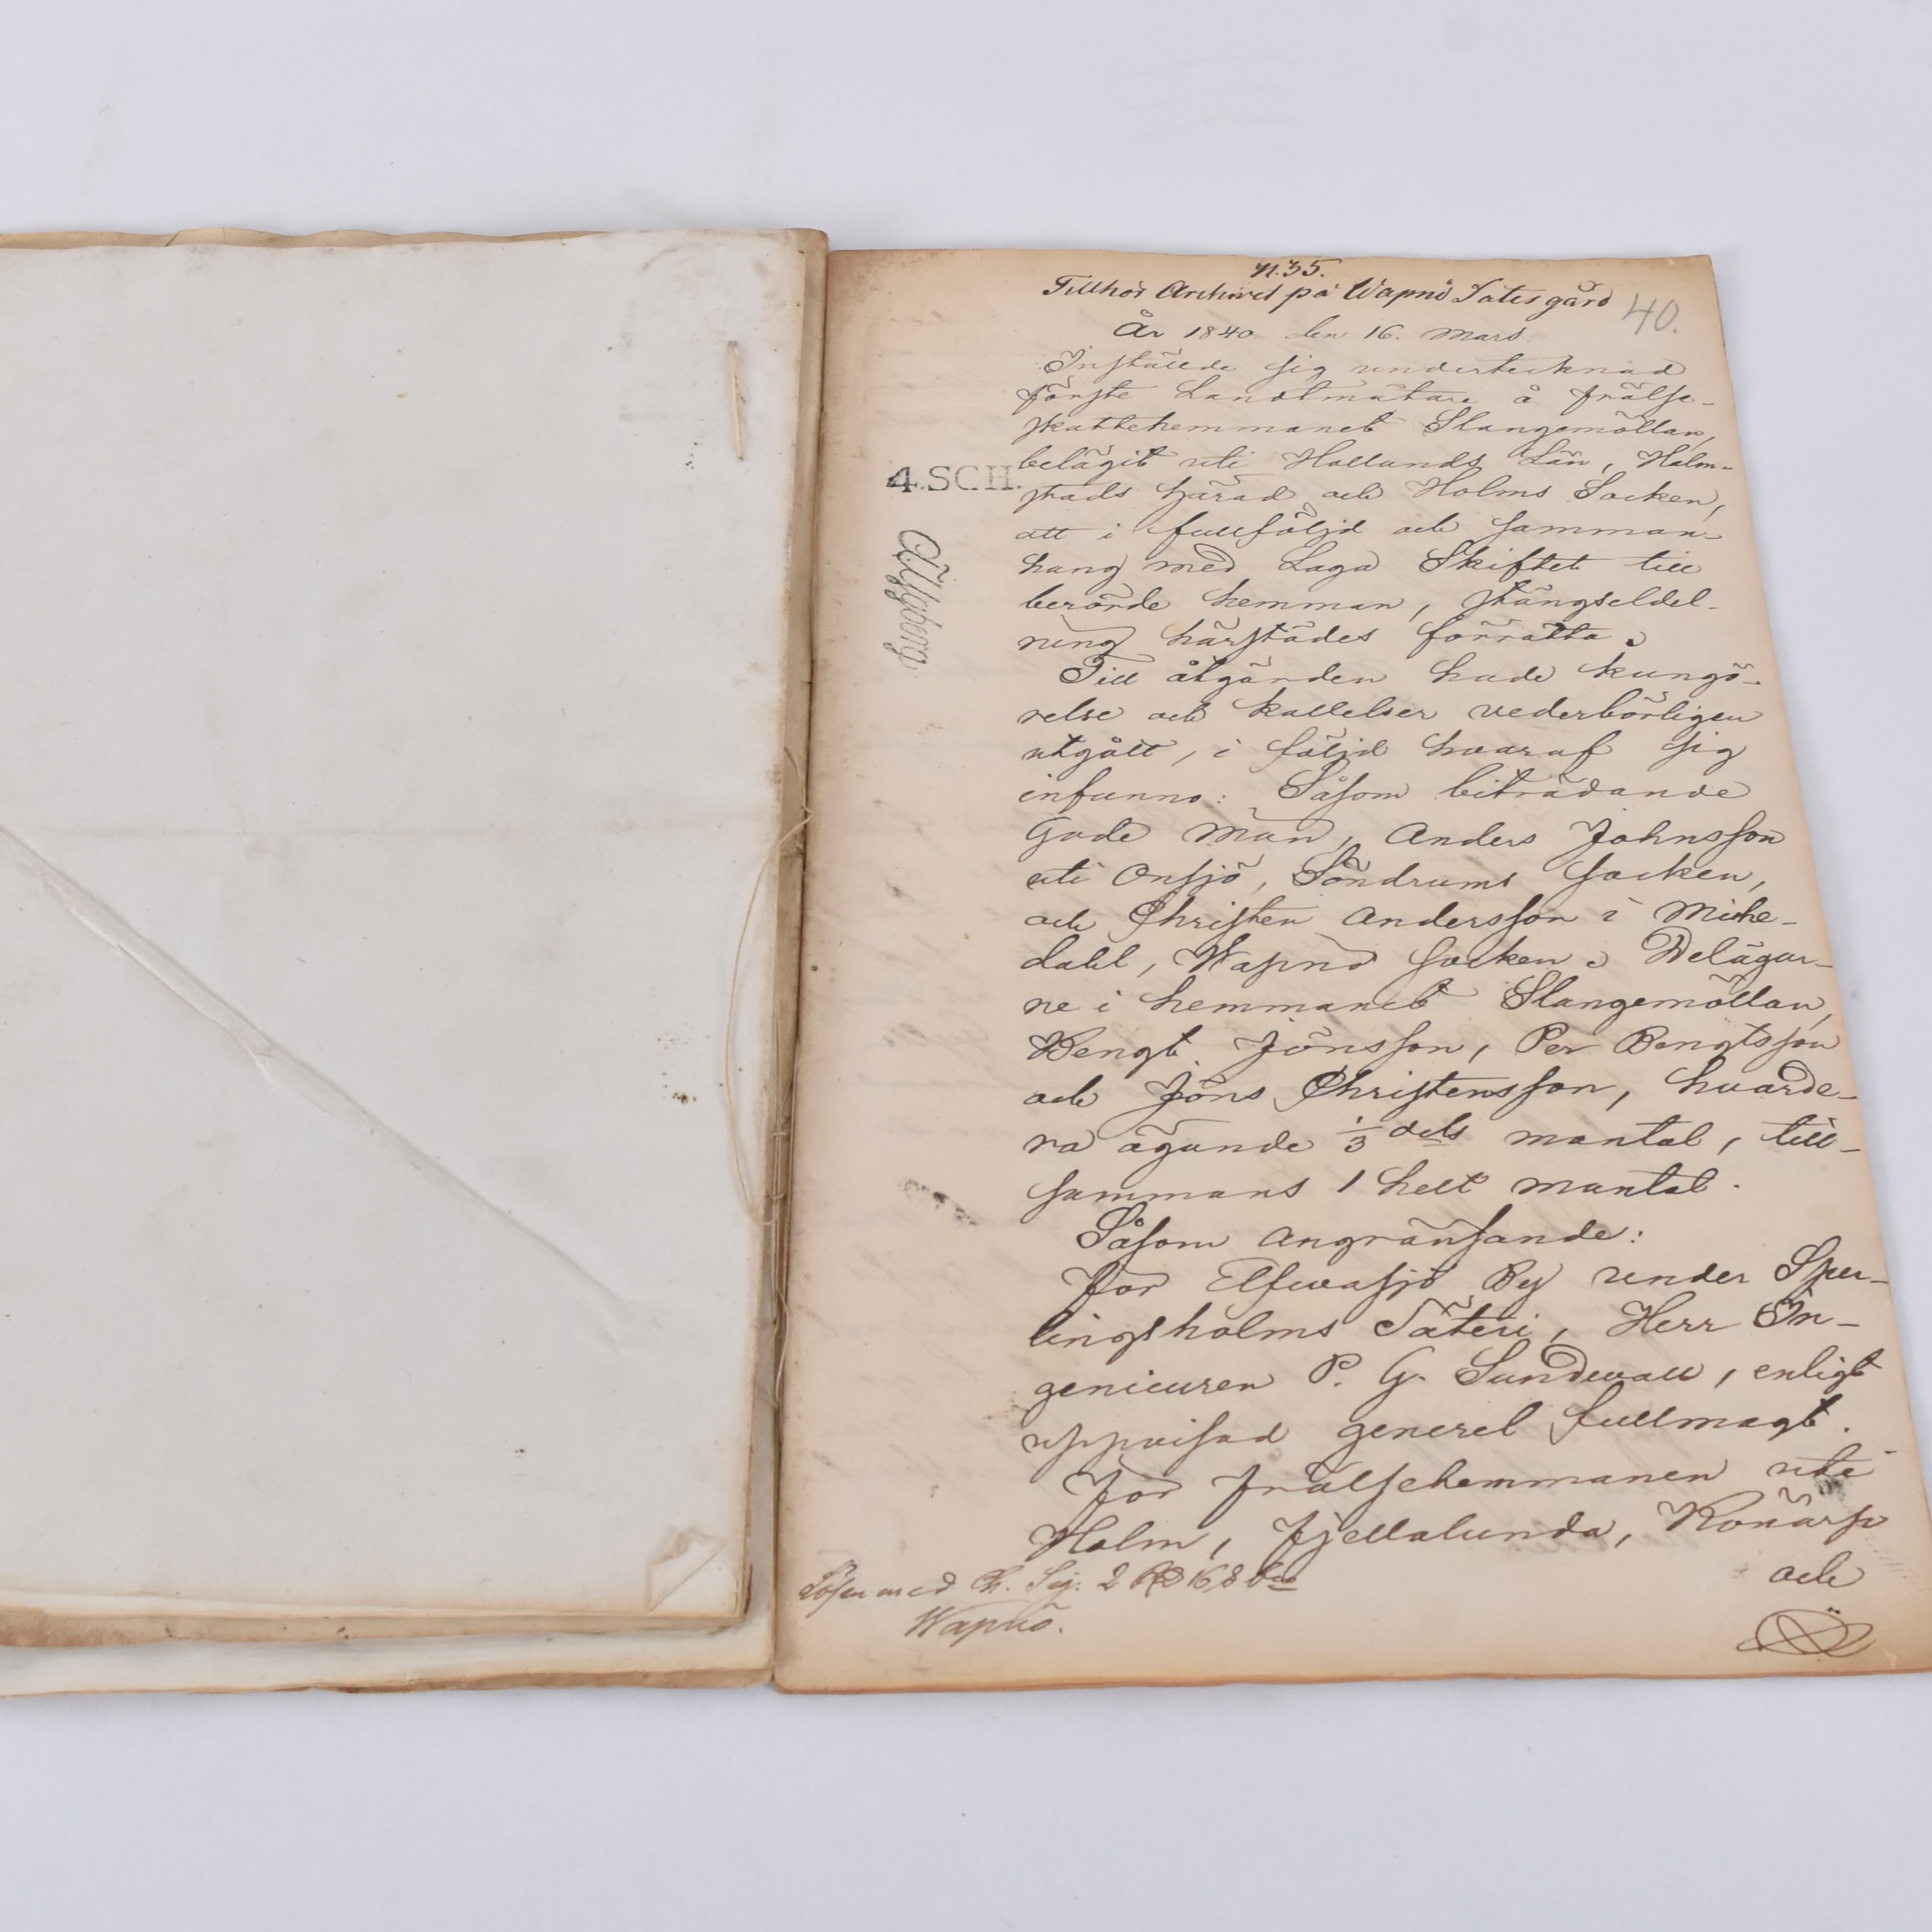 n. 35.
Tillhör Archivet på Wapnö Sätesgård
40.
År 1840 den 16. Mars.
Inställde sig undertecknad
förste Landtmätare å frälse-
skattehemmanet Slangemöllan,
belägit uti Hallands Län, Halm-
stads härad och Holms Socken,
att i fullföljd och samman-
hang med Laga Skiftet till
berörde hemman, stängseldel-
ning härstädes förrätta.
Till åtgärden hade kungö-
relse och kallelser vederbörligen
utgått, i följd hvaraf sig
infunno: Såsom biträdande
Gode Män, Anders Johnsson
uti Onsjö, Söndrums socken,
och Christen Andersson i Miche-
dahl, Wapnö socken. Delägar-
ne i hemmanet Slangemöllan,
Bengt Jönsson, Per Bengtsson
och Jöns Christensson, hvarde-
ra ägande 1/3 dels mantal, till-
sammans 1 helt mantal.
Såsom angränsande:
för Elfvasjö By under Sper-
lingsholms Säteri, Herr In-
genieuren P. G. Sundevall, enligt
uppvisad generel fullmagt.
för frälsehemmanen uti
Holm, Fjellalunda, Konärp
och
4.SCH.
Lösen med Ch. Sig: 2 Rd 16,8 bco
Wapnö.